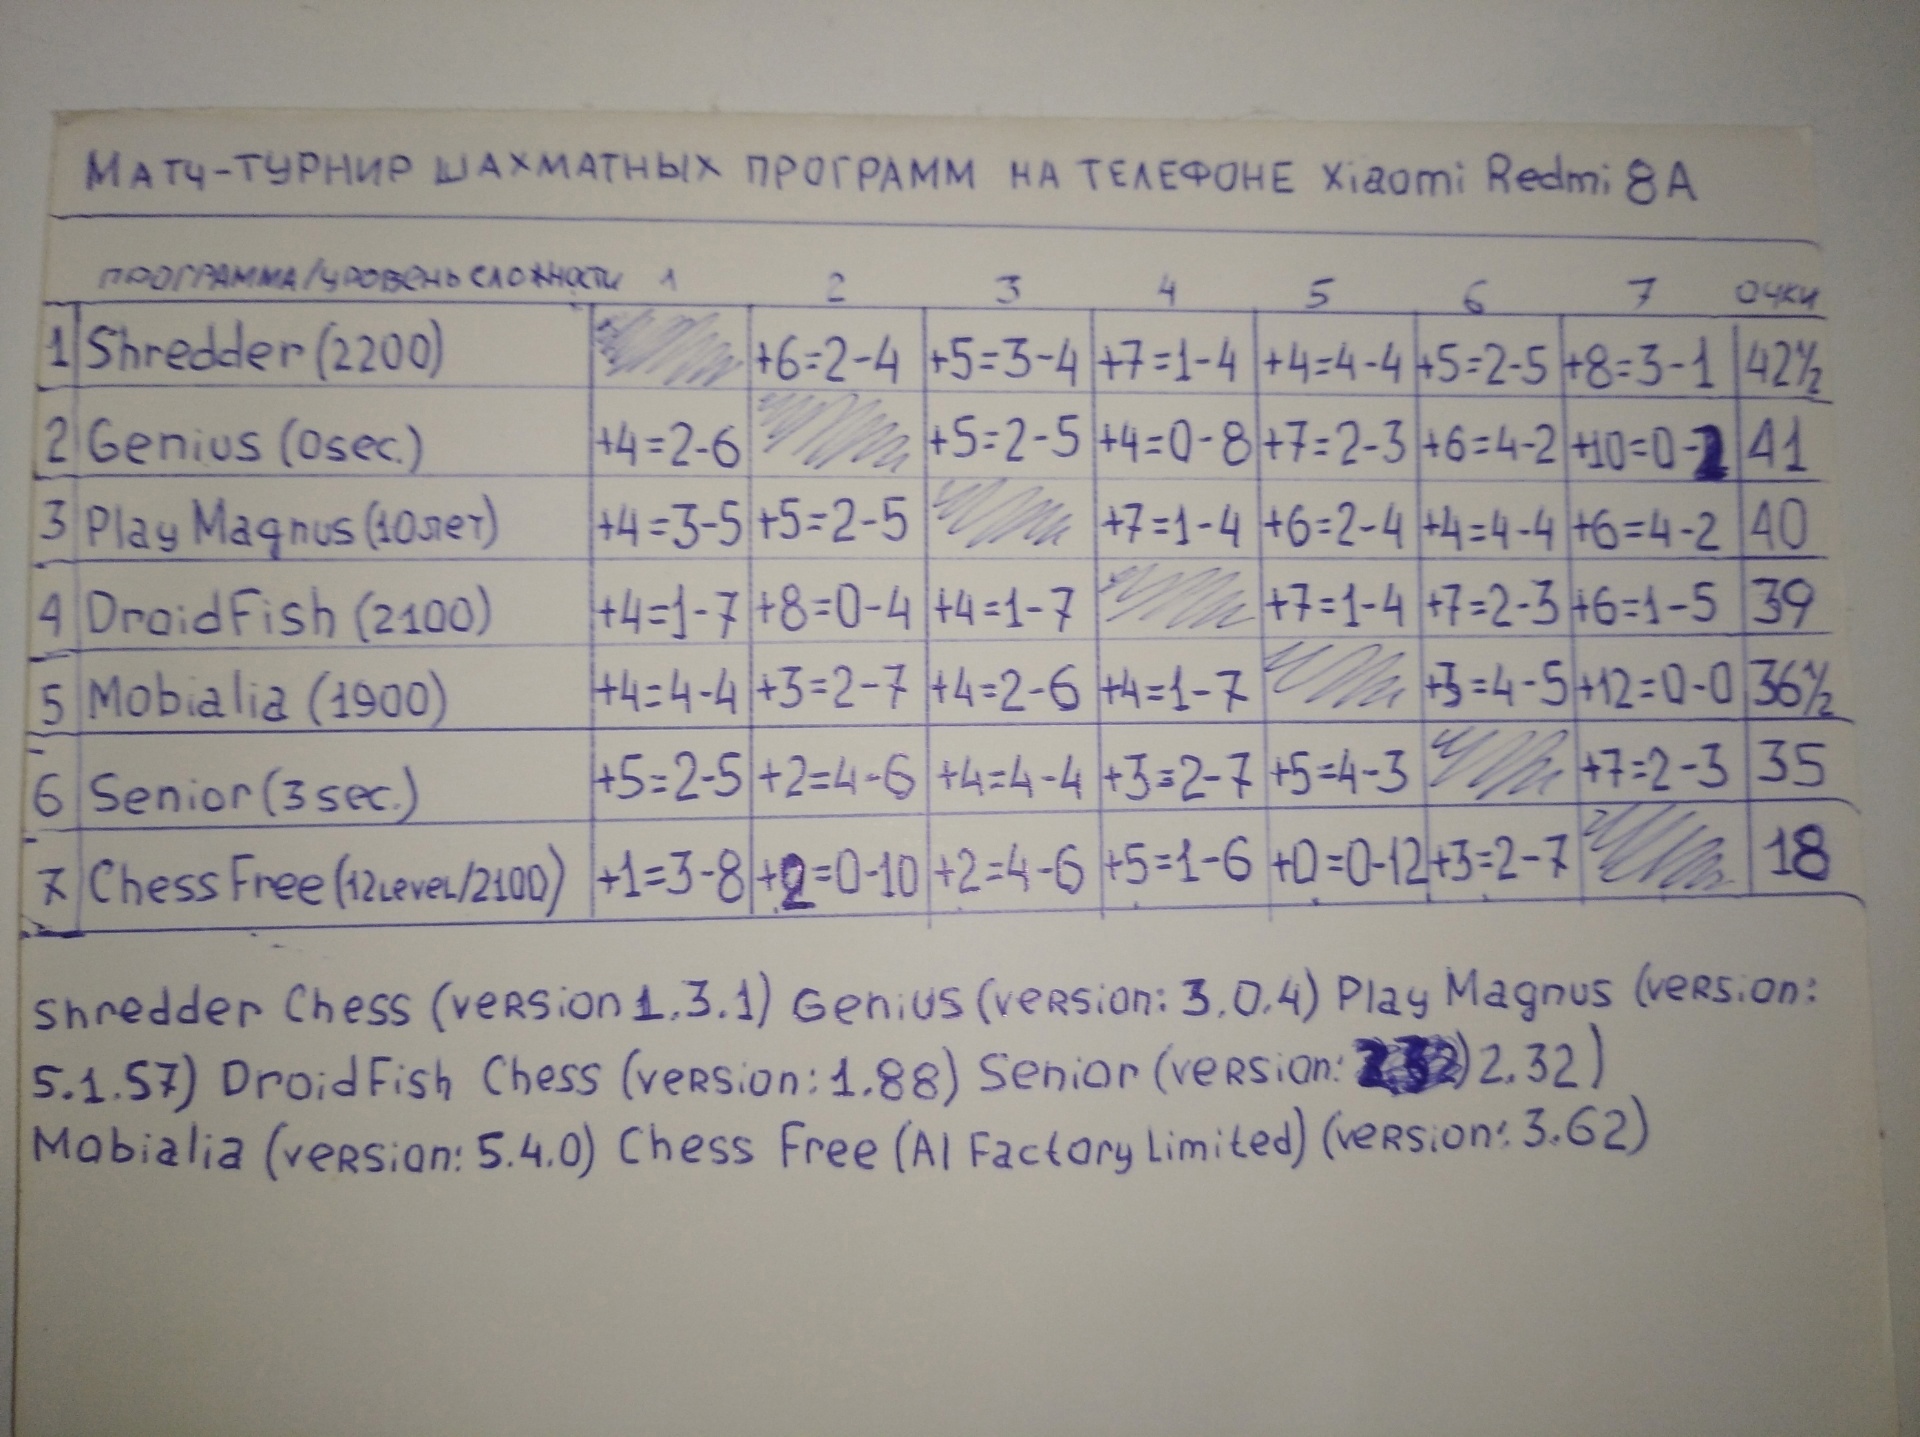 МАТЧ-ТУРНИР ШАХМАТНЫХ ПРОГРАММ НА ТЕЛЕФОНЕ Xiaomi Redmi 8A
ПРОГРАММА/УРОВЕНЬ СЛОЖНОСТИ 1 2 3 4 5 6 7 ОЧКИ
1 Shredder (2200) +6=2-4 +5=3-4 +7=1-4 +4=4-4 +5=2-5 +8=3-1 42½
2 Genius (0sec.) +4=2-6 +5=2-5 +4=0-8 +7=2-3 +6=4-2 +10=0-2 41
3 Play Magnus (10лет) +4=3-5 +5=2-5 +7=1-4 +6=2-4 +4=4-4 +6=4-2 40
4 DroidFish (2100) +4=1-7 +8=0-4 +4=1-7 +7=1-4 +7=2-3 +6=1-5 39
5 Mobialia (1900) +4=4-4 +3=2-7 +4=2-6 +4=1-7 +3=4-5 +12=0-0 36½
6 Senior (3 sec.) +5=2-5 +2=4-6 +4=4-4 +3=2-7 +5=4-3 +7=2-3 35
7 Chess Free (12Level/2100) +1=3-8 +2=0-10 +2=4-6 +5=1-6 +0=0-12 +3=2-7 18
Shredder Chess (version 1.3.1) Genius (version: 3.0.4) Play Magnus (version:
5.1.57) DroidFish Chess (version: 1.88) Senior (version: 2.32)
Mobialia (version: 5.4.0) Chess Free (AI Factory Limited) (version: 3.62)